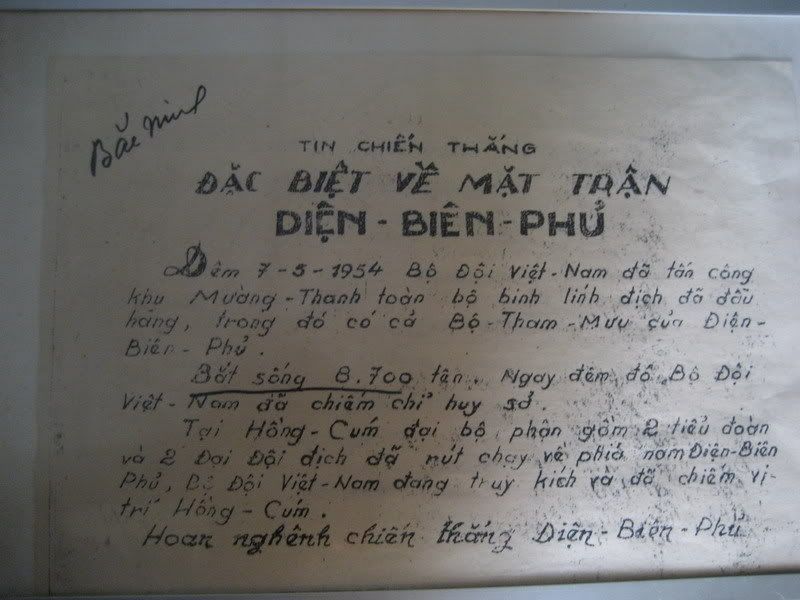 Bắc Ninh
TIN CHIẾN THẮNG
ĐẶC BIỆT VỀ MẶT TRẬN
DIỆN - BIÊN - PHỦ
Đêm 7-5-1954 Bộ Đội Việt-Nam đã tấn công
khu Mường-Thanh toàn bộ binh lính địch đã đầu
hàng, trong đó có cả Bộ-Tham-Mưu của Điện-
Biên-Phủ.
Bắt sống 8.700 tên. Ngay đêm đó Bộ Đội
Việt-Nam đã chiếm chỉ huy sở.
Tại Hồng-Cúm đại bộ phận gồm 2 tiểu đoàn
và 2 Đại Đội địch đã rút chạy về phía nam Điện-Biên
Phủ, Bộ Đội Việt-Nam đang truy kích và đã chiếm vị-
trí Hồng-Cúm.
Hoan nghênh chiến thắng Điện-Biên-Phủ